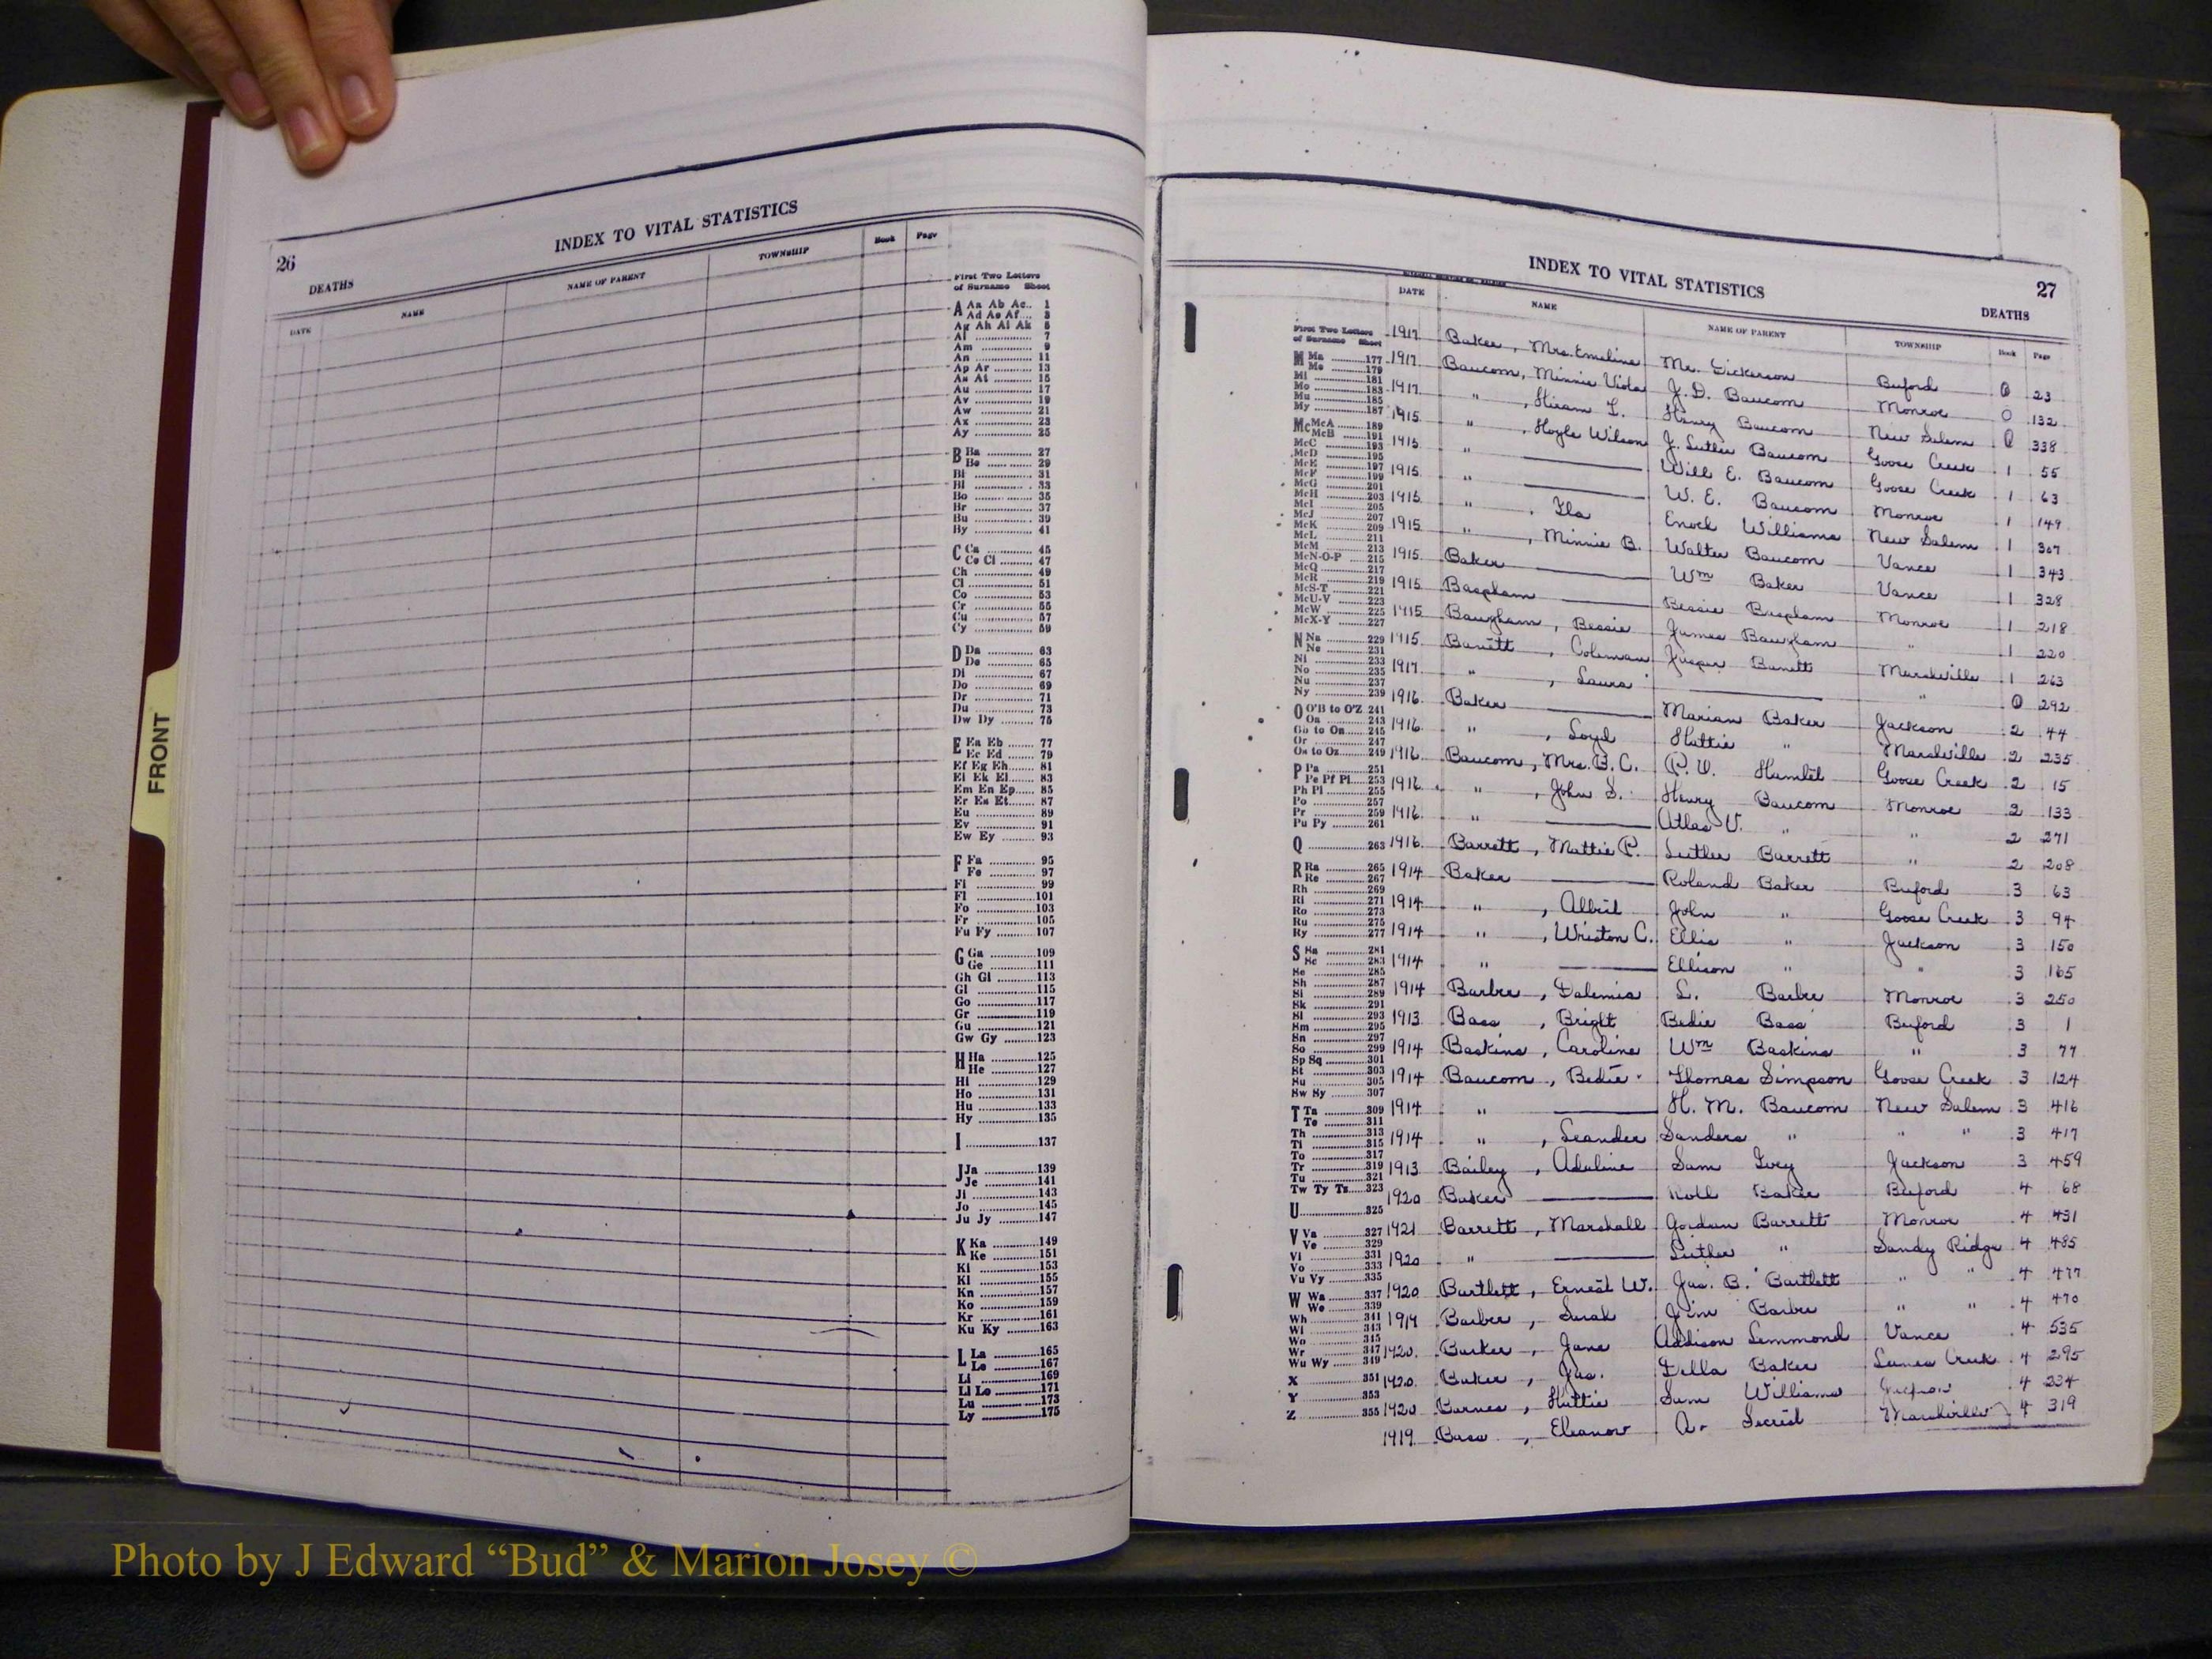 FRONT
INDEX TO VITAL STATISTICS
26
DEATHS
DATE NAME NAME OF PARENT TOWNSHIP Book Page
First Two Letters
of Surname Sheet
A Aa Ab Ac.. 1
Ad Ae Af... 3
Ag Ah Ai Ak 5
Al ............... 7
Am ............. 9
An ............. 11
Ap Ar ........... 13
As At ........... 15
Au ............. 17
Av ............. 19
Aw ............. 21
Ax ............. 23
Ay ............. 25
B Ba ............. 27
Be ............. 29
Bi ............. 31
Bl ............. 33
Bo ............. 35
Br ............. 37
Bu ............. 39
By ............. 41
C Ca ............. 45
Ce Ci ......... 47
Ch ............. 49
Cl ............. 51
Co ............. 53
Cr ............. 55
Cu ............. 57
Cy ............. 59
D Da ............. 63
De ............. 65
Di ............. 67
Do ............. 69
Dr ............. 71
Du ............. 73
Dw Dy ......... 75
E Ea Eb ....... 77
Ec Ed ......... 79
Ef Eg Eh....... 81
Ei Ek El....... 83
Em En Ep..... 85
Er Es Et....... 87
Eu ............. 89
Ev ............. 91
Ew Ey ......... 93
F Fa ............. 95
Fe ............. 97
Fi ............. 99
Fl .............101
Fo .............103
Fr .............105
Fu Fy ..........107
G Ga .............109
Ge .............111
Gh Gi ..........113
Gl .............115
Go .............117
Gr .............119
Gu .............121
Gw Gy .........123
H Ha .............125
He .............127
Hi .............129
Ho .............131
Hu .............133
Hy .............135
I ...................137
J Ja .............139
Je .............141
Ji .............143
Jo .............145
Ju Jy ..........147
K Ka .............149
Ke .............151
Ki .............153
Kl .............155
Kn .............157
Ko .............159
Kr .............161
Ku Ky .........163
L La .............165
Le .............167
Li .............169
Ll Lo ..........171
Lu .............173
Ly .............175
INDEX TO VITAL STATISTICS
27
DEATHS
DATE NAME NAME OF PARENT TOWNSHIP Book Page
First Two Letters
of Surname Sheet
M Ma .........177
Me .........179
Mi .........181
Mo .........183
Mu .........185
My .........187
Mc McA .......189
McB .......191
McC .......193
McD .......195
McE .......197
McF .......199
McG .......201
McH .......203
McI .......205
McJ .......207
McK .......209
McL .......211
McM .......213
McN-O-P ...215
McQ .......217
McR .......219
McS-T .....221
McU-V .....223
McW .......225
McX-Y .....227
N Na .........229
Ne .........231
Ni .........233
No .........235
Nu .........237
Ny .........239
O O'B to O'Z 241
Oa .........243
Ob to On.....245
Or .........247
Os to Oz.....249
P Pa .........251
Pe Pf Pi....253
Ph Pl ......255
Po .........257
Pr .........259
Pu Py ......261
Q ...............263
R Ra .........265
Re .........267
Rh .........269
Ri .........271
Ro .........273
Ru .........275
Ry .........277
S Sa .........281
Sc .........283
Se .........285
Sh .........287
Si .........289
Sk .........291
Sl .........293
Sm .........295
Sn .........297
So .........299
Sp Sq ......301
St .........303
Su .........305
Sw Sy ......307
T Ta .........309
Te .........311
Th .........313
Ti .........315
To .........317
Tr .........319
Tu .........321
Tw Ty Tz.....323
U...............325
V Va .........327
Ve .........329
Vi .........331
Vo .........333
Vu Vy ......335
W Wa .........337
We .........339
Wh .........341
Wi .........343
Wo .........345
Wr .........347
Wu Wy .......349
X ...............351
Y ...............353
Z ...............355
1917 Baker, Mrs. Emeline Mr. Dickerson Buford 0 23
1917 Baucom, Minnie Viola J. D. Baucom Monroe 0 132
1917 " , Hiram L. Henry Baucom New Salem 0 338
1915 " , Hoyle Wilson J. Luther Baucom Goose Creek 1 55
1915 " Will E. Baucom Goose Creek 1 63
1915 " W. E. Baucom Monroe 1 149
1915 " , Ila Enoch Williams New Salem 1 307
1915 " , Minnie B. Walter Baucom Vance 1 343
1915 Baker Wm Baker Vance 1 328
1915 Bessie Monroe 1 218
1915 Baugham, Bessie James Baugham " 1 220
1915 Barrett, Coleman Jasper Barrett Marshville 1 263
1917 " , Laura " 0 292
1916 Baker Marian Baker Jackson 2 44
1916 " , Loyd Hattie " Marshville 2 235
1916 Baucom, Mrs. B. C. P. W. Hamlet Goose Creek 2 15
1916 " , John S. Henry Baucom Monroe 2 133
1916 " Atlas V. " " 2 271
1916 Barrett, Mattie P. Luther Barrett " 2 208
1914 Baker Roland Baker Buford 3 63
1914 " , Albert John " Goose Creek 3 94
1914 " , Wriston C. Ellis " Jackson 3 150
1914 " Ellison " " 3 165
1914 Barbee, Dalemia L. Barbee Monroe 3 250
1913 Bass, Bright Bedie Bass Buford 3 1
1914 Baskins, Caroline Wm Baskins " 3 77
1914 Baucom, Bedie Thomas Simpson Goose Creek 3 124
1914 " H. M. Baucom New Salem 3 416
1914 " , Leander Sanders " " " 3 417
1913 Bailey, Adaline Sam Ivey Jackson 3 459
1920 Baker Roll Baker Buford 4 68
1921 Barrett, Marshall Gordan Barrett Monroe 4 431
1920 " Luther " Sandy Ridge 4 485
1920 Bartlett, Ernest W. Jas. B. Bartlett " " 4 477
1919 Barbee, Sarah Jim Barbee " " 4 470
1920 Barker, Jane Addison Lemmond Vance 4 535
1920 Baker, Jas. Della Baker Lanes Creek 4 295
1920 Barnes, Hattie Sam Williams Jackson 4 234
1919 Bass, Eleanor A. Secrest Marshville 4 319
Photo by J Edward “Bud” & Marion Josey ©